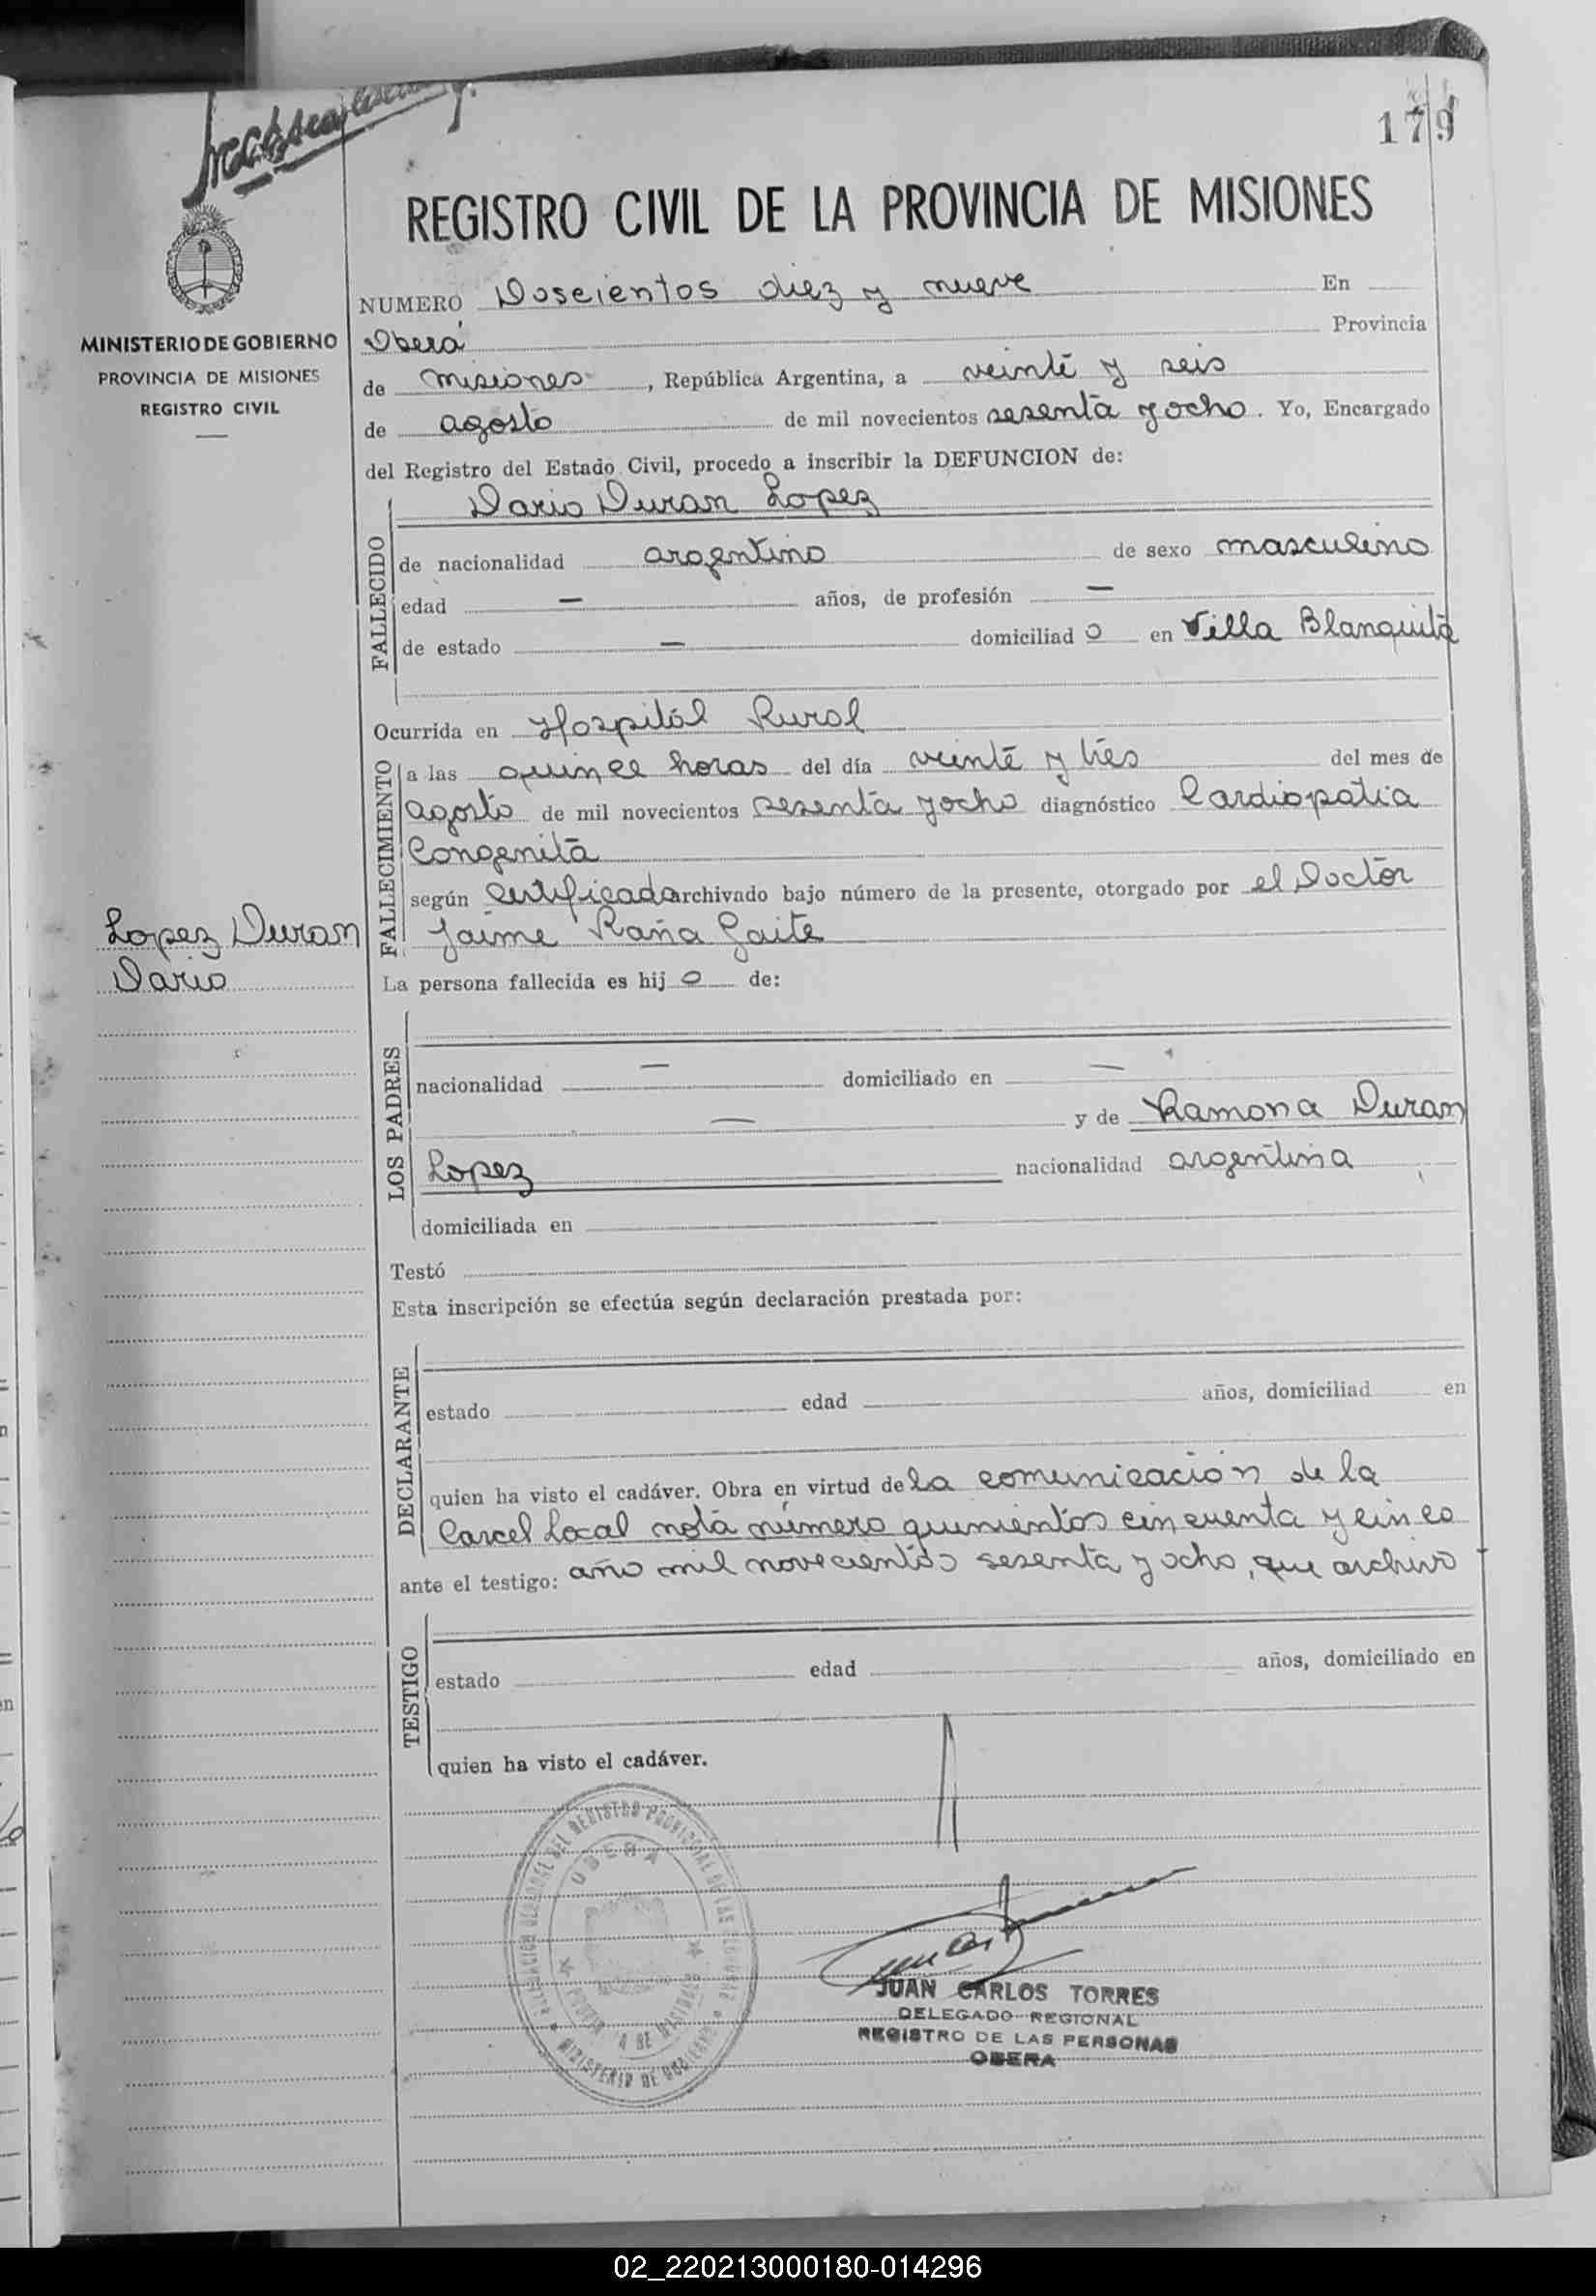 179
REGISTRO CIVIL DE LA PROVINCIA DE MISIONES
MINISTERIO DE GOBIERNO
PROVINCIA DE MISIONES
REGISTRO CIVIL
NUMERO Doscientos diez y nueve En
Oberá Provincia
de misiones, República Argentina, a veinte y seis
de agosto de mil novecientos sesenta y ocho. Yo, Encargado
del Registro del Estado Civil, procedo a inscribir la DEFUNCION de:
FALLECIDO
Dario Duran Lopez
de nacionalidad argentino de sexo masculino
edad — años, de profesión —
de estado — domiciliad o en Villa Blanquita
Ocurrida en Hospital Rural
FALLECIMIENTO
a las quince horas del día veinte y tres del mes de
agosto de mil novecientos sesenta y ocho diagnóstico Cardiopatia
Congenita
según certificado archivado bajo número de la presente, otorgado por el Doctor
Jaime Raña Gaite
Lopez Duran
Dario
La persona fallecida es hij o de:
LOS PADRES
nacionalidad — domiciliado en —
— y de Ramona Duran
Lopez nacionalidad argentina
domiciliada en
Testó
Esta inscripción se efectúa según declaración prestada por:
DECLARANTE
estado edad años, domiciliad en
quien ha visto el cadáver. Obra en virtud de la comunicación de la
Carcel Local nota número quinientos cincuenta y cinco
ante el testigo: año mil novecientos sesenta y ocho, que archivo
TESTIGO
estado edad años, domiciliado en
quien ha visto el cadáver.
OBERA
MINISTERIO DE GOBIERNO
JUAN CARLOS TORRES
DELEGADO REGIONAL
REGISTRO DE LAS PERSONAS
OBERA
02_220213000180-014296